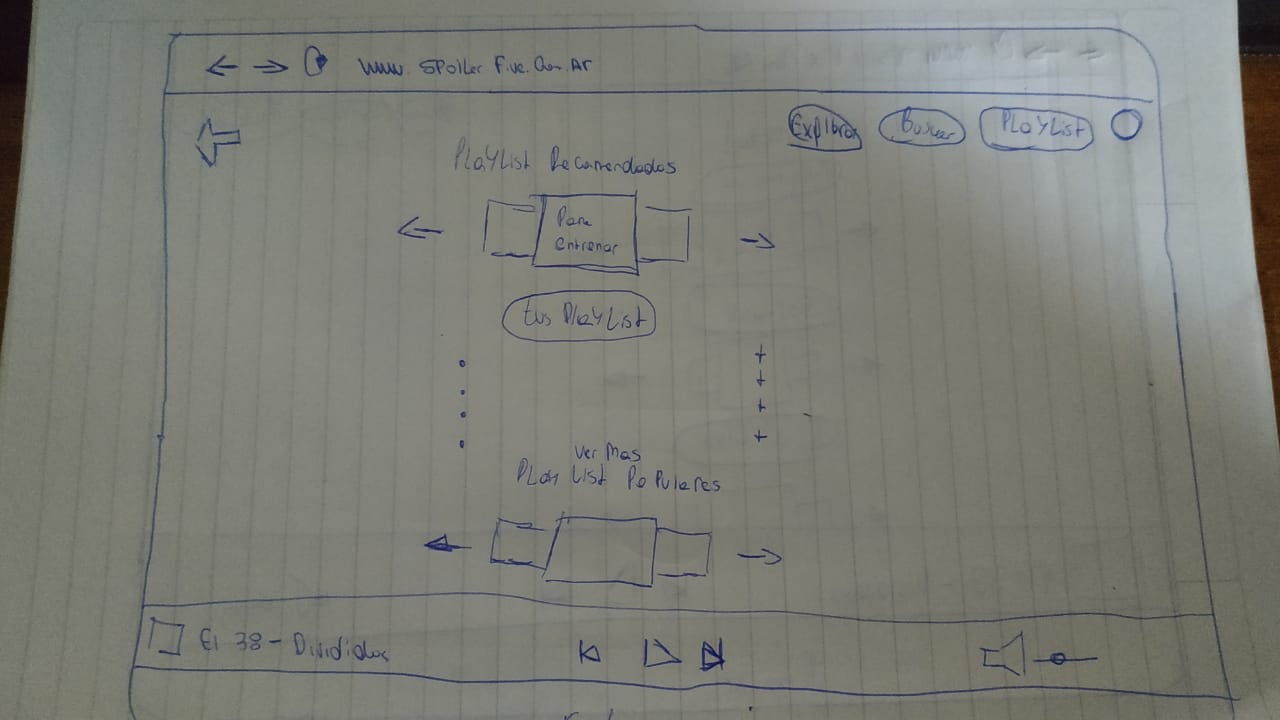 www.Spoiler Five.Com.Ar
Explorar
Buscar
PLAYLIST
PLAYLIST Recomendados
Para
entrenar
tus PLAYLIST
+
+
+
+
Ver Mas
PLAY LIST POPULARES
El 38 - Divididos